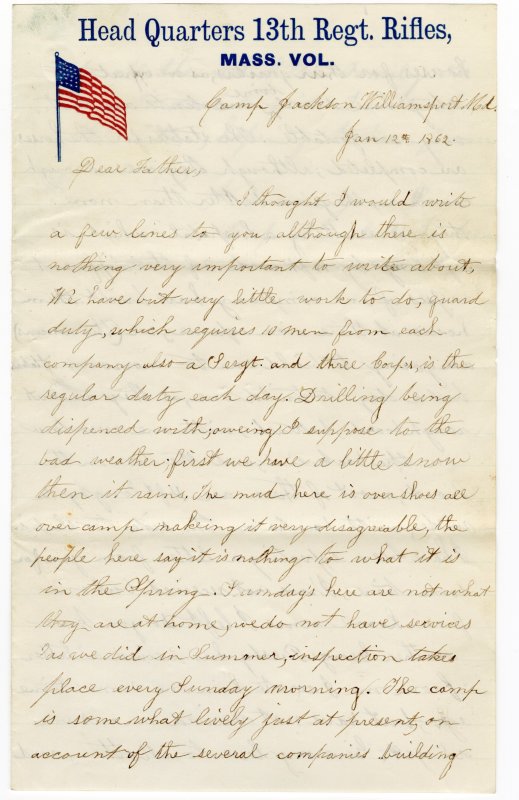 Head Quarters 13th Regt. Rifles,
MASS. VOL.
Camp Jackson Williamsport Md.
Jan 12th 1862.
Dear Father,
I thought I would write
a few lines to you, although there is
nothing very important to write about,
We have but very little work to do, guard
duty, which requires 10 men from each
company also a Sergt. and three Corps, is the
regular duty each day. Drilling being
dispenced with; oweing I suppose to the
bad weather; first we have a little snow
then it rains. The mud here is over shoes all
over camp makeing it very disagreable, the
people here say it is nothing to what it is
in the Spring. Sunday's here are not what
they are at home, we do not have services
as we did in Summer, inspection takes
place every Sunday morning. The camp
is some what lively just at present, on
account of the several companies building